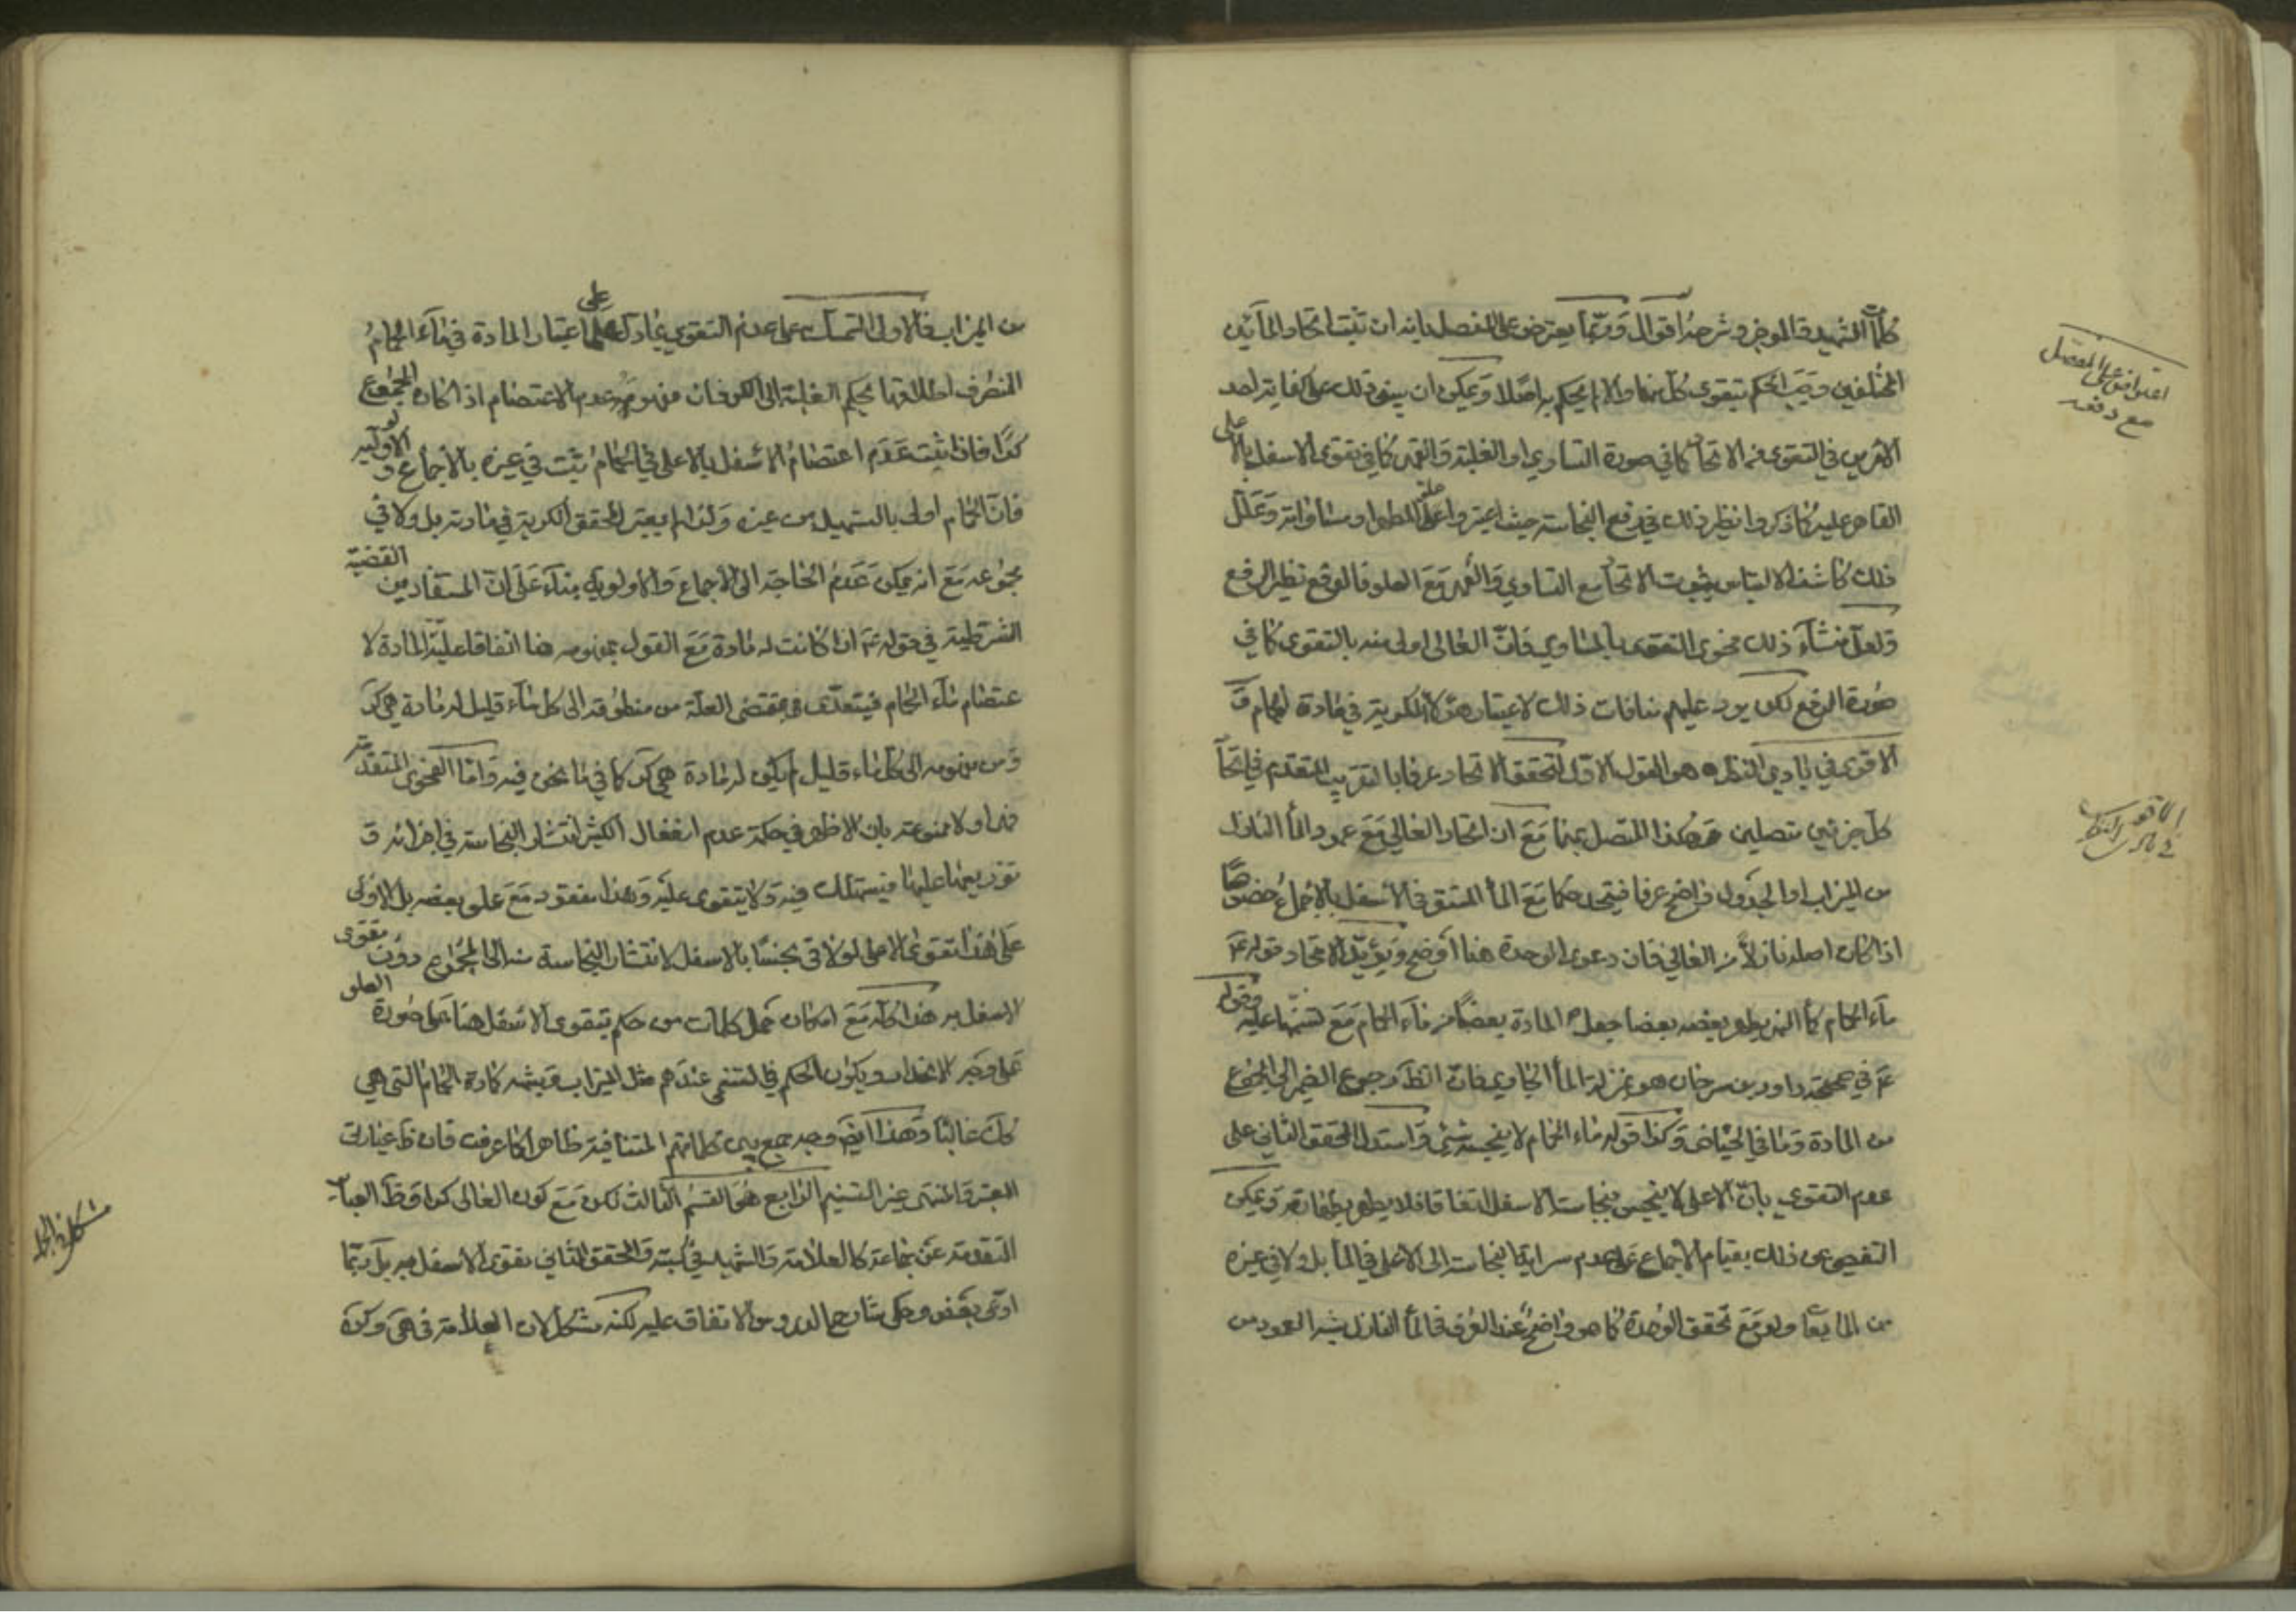 كلمات الشهيد في الموجز وشرحه اقوال وربما يعترض على المفصل بانه ان ثبت اتحاد المائين
المختلفين وجب الحكم بتقوى كل منهما والا لم يحكم به اصلا ويمكن ان يبنى ذلك على كفاية احد
الامرين في التقوى من الاتحاد كما في صورة التساوي او الغلبة والقهر كما في تقوى الاسفل بالاعلى
القاهر عليه كما ذكروا نظير ذلك في رفع النجاسة حيث اعتبروا علو المطهر او مساواته وعلل
ذلك كاشف الالتباس بثبوت الاتحاد مع التساوي والقهر مع العلو فالدفع نظير الرفع
ولعل منشاء ذلك فحوى التقوى بالمساوي فان العالى اولى منه بالتقوى كما في
صورة الرفع لكن يرد عليهم منافات ذلك لاعتبار هؤلاء الكرية في مادة الحمام و
الاقوى في بادي النظر هو القول الاول لتحقق الاتحاد عرفا بالتقريب المتقدم في اتحاد
كل جزئين متصلين وهكذا المتصل بهما مع ان اتحاد العالي مع عمود الماء النازل
من الميزاب او الجدول واضح عرفا فيتحد حكما مع الماء المستقر في الاسفل بالاجماع خصوصا
اذا كان اصله نازلا من العالي فان دعوى الوحدة هنا اوضح ويؤيد الاتحاد قوله ع
ماء الحمام كماء النهر يطهر بعضه بعضا جعل المادة بعضا من ماء الحمام مع تسنمها عليه وقوله
ع في صحيحة داود بن سرحان هو بمنزلة الماء الجاري فان الظ رجوع الضمير الى المجموع
من المادة وما في الحياض وكذا قوله ماء الحمام لا ينجسه شئ واستدل المحقق الثاني على
عدم التقوى بان الاعلى لا ينجس بنجاسة الاسفل اتفاقا فلا يطهر بطهارته ويمكن
التفصي عن ذلك بقيام الاجماع على عدم سراية النجاسة الى الاعلى في الماء بل ولا في غيره
من المايعات ولو مع تحقق الوحدة كما هو واضح عند العرف فالماء النازل شبه العمود من
اعتراض على المفصل
مع دفعه
الاقوى
في بادى النظر
من الميزاب فالاولى التمسك على عدم التقوى بما دل على اعتبار المادة في ماء الحمام
المنصرف اطلاقها بحكم الغلبة الى الكر فان مفهومه عدم الاعتصام اذا كان المجموع
كرا فاذا ثبت عدم اعتصام الاسفل بالاعلى في الحمام ثبت في غيره بالاجماع والاولوية
فان الحمام اولى بالتسهيل من غيره ولذا لم يعتبر المحقق الكرية في مادته بل ولا في
مجموعه مع انه يمكن عدم الحاجة الى الاجماع والاولوية بناء على ان المستفاد من القضية
الشرطية في قوله ع اذا كانت له مادة مع القول بمفهومه هنا اتفاقا علية المادة لا
عتصام ماء الحمام فيتعدى بمقتضى العلة من منطوقه الى كل ماء قليل له مادة هي كر
ومن مفهومه الى كل ماء قليل لم يكن له مادة هي كر كما في ما نحن فيه واما الفحوى المتقدمة
فهي اولا ممنوعة بان الاظهر في حكمة عدم انفعال الكثير انتشار النجاسة في اجزائه و
توزيعها عليها فيستهلك فيه ولا يتقوى عليه وهذا مفقود مع علو بعضه بل الاولى
على هذا تقوى الاعلى لو لاقى نجسا بالاسفل لانتشار النجاسة منه الى المجموع دون تقوى
الاسفل به هذا كله مع امكان حمل كلمات من حكم بتقوى الاسفل هنا على صورة العلو
على وجه الانحدار ويكون الحكم في التسنمى عندهم مثل الميزاب وشبهه كمادة الحمام التي هي
كك غالبا وهذا ايض وجه جمع بين كلماتهم المتنافية ظاهرا كما عرفت فان ظ عبارت
المعتبر والمنتهى غير التسنيم الرابع هو القسم الثالث لكن مع كون العالى كرا وظ العبارت
المتقدمة عن جماعة كالعلامة والشهيد في كتبه والمحقق الثاني تقوى الاسفل به بل ربما
ادعى بعض وحكى شارح الدروس الاتفاق عليه لكنه مشكل لان العلامة في هى وكرة